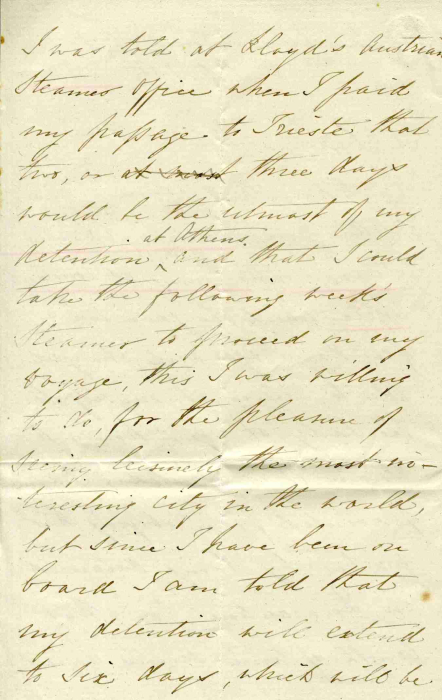 I was told at Lloyd's Austrian
Steamer Office when I paid
my passage to Trieste that
two, or at most three days
would be the utmost of my
detention at Athens, and that I could
take the following week's
Steamer to proceed on my
voyage, this I was willing
to do, for the pleasure of
seeing leisurely the most in-
teresting city in the world,
but since I have been on
board I am told that
my detention will extend
to six days, which will be